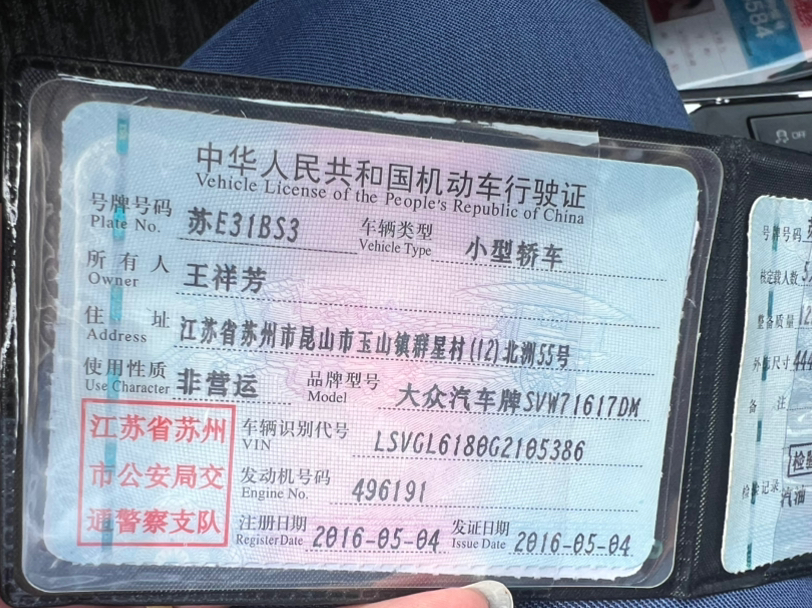 中华人民共和国机动车行驶证
Vehicle License of the People's Republic of China
号牌号码 苏E31BS3 车辆类型 小型轿车
Plate No. Vehicle Type
所有人 王祥芳
Owner
住址 江苏省苏州市昆山市玉山镇群星村(12)北洲55号
Address
使用性质 非营运 品牌型号 大众汽车牌SVW71617DM
Use Character Model
江苏省苏州
市公安局交
通警察支队
车辆识别代号 LSVGL6180G2105386
VIN
发动机号码 496191
Engine No.
注册日期 2016-05-04 发证日期 2016-05-04
Register Date Issue Date
号牌号码
核定载人数
整备质量
外廓尺寸
备注
检验记录
汽油
584